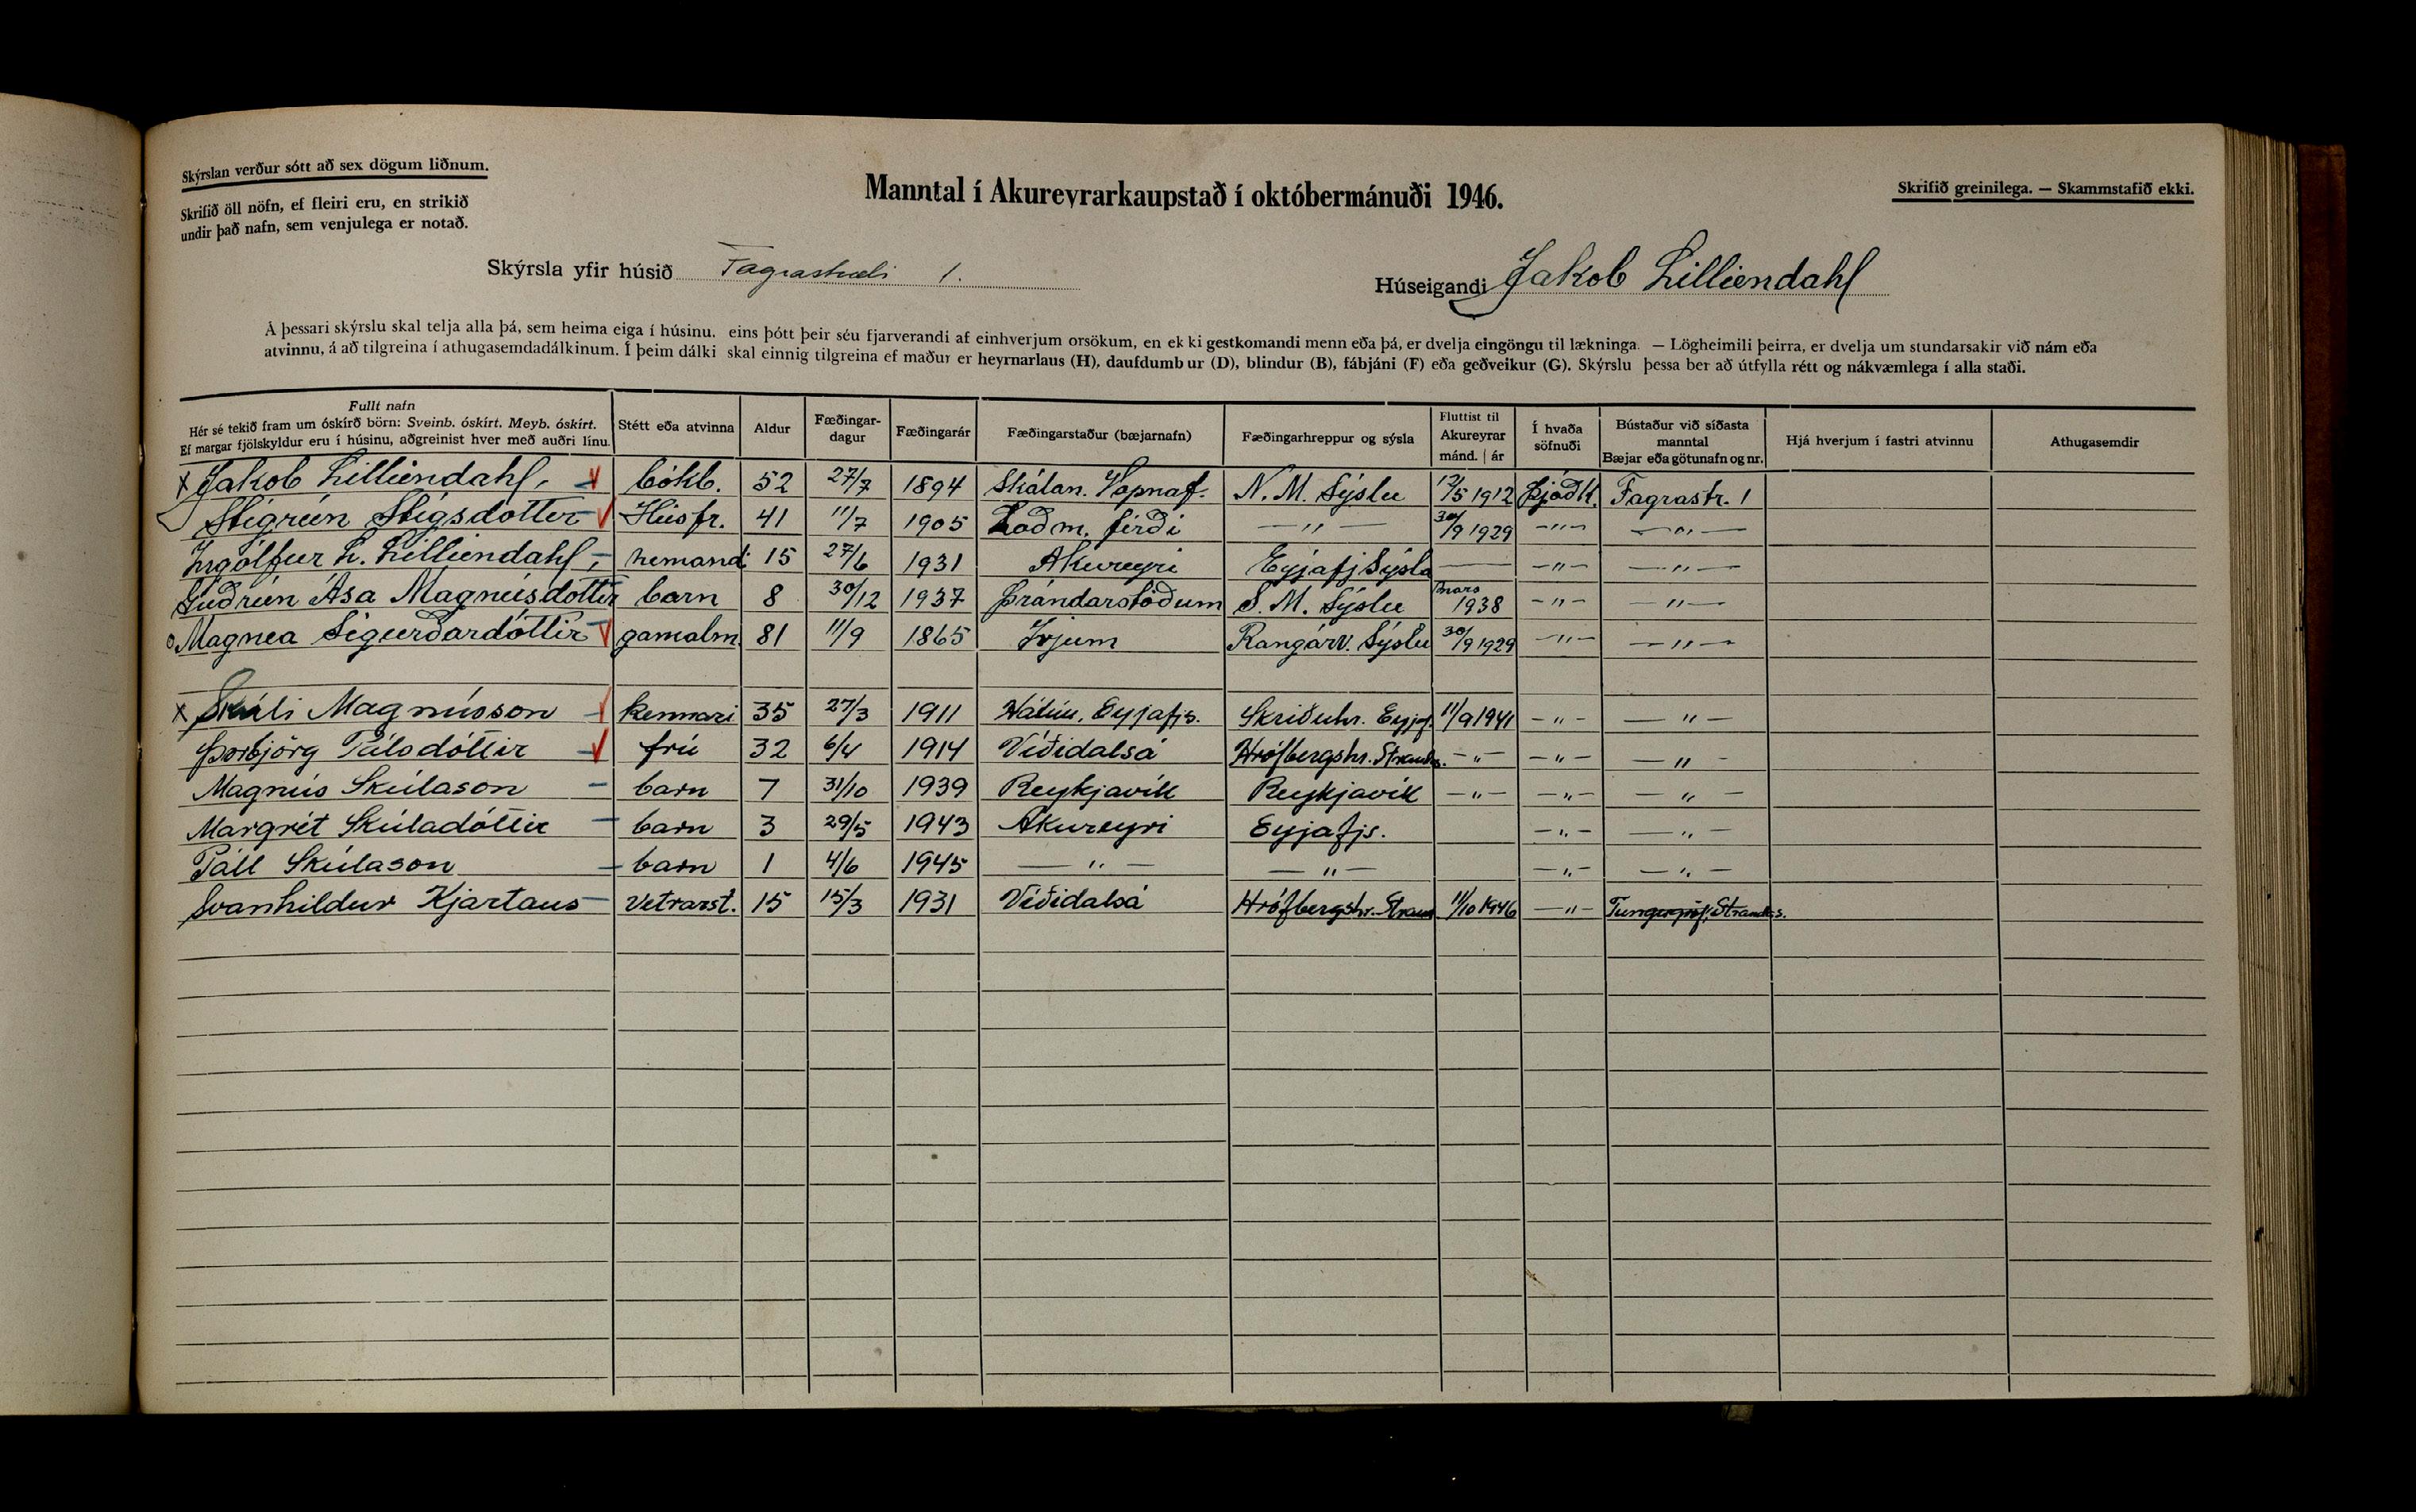 Skýrslan verður sótt að sex dögum liðnum.
Skrifið öll nöfn, ef fleiri eru, en strikið
undir það nafn, sem venjulega er notað.
Manntal í Akureyrarkaupstað í októbermánuði 1946.
Skrifið greinilega. — Skammstafið ekki.
Skýrsla yfir húsið Fagrastræti 1.
Húseigandi Jakob Lilliendahl
Á þessari skýrslu skal telja alla þá, sem heima eiga í húsinu, eins þótt þeir séu fjarverandi af einhverjum orsökum, en ekki gestkomandi menn eða þá, er dvelja eingöngu til lækninga. — Lögheimili þeirra, er dvelja um stundarsakir við nám eða
atvinnu, á að tilgreina í athugasemdadálkinum. Í þeim dálki skal einnig tilgreina ef maður er heyrnarlaus (H), daufdumbur (D), blindur (B), fábjáni (F) eða geðveikur (G). Skýrslu þessa ber að útfylla rétt og nákvæmlega í alla staði.
Fullt nafn
Hér sé tekið fram um óskírð börn: Sveinb. óskírt. Meyb. óskírt.
Ef margar fjölskyldur eru í húsinu, aðgreinist hver með auðri línu.
Stétt eða atvinna
Aldur
Fæðingar-
dagur
Fæðingarár
Fæðingarstaður (bæjarnafn)
Fæðingarhreppur og sýsla
Fluttist til
Akureyrar
mánd. | ár
Í hvaða
söfnuði
Bústaður við síðasta
manntal
Bæjar eða götunafn og nr.
Hjá hverjum í fastri atvinnu
Athugasemdir
x Jakob Lilliendahl, bókb. 52 27/7 1894 Skálan. Vopnaf. N. M. Sýslu 12/5 1912 Þjóðk. Fagrastr. 1
Stigrún Stígsdóttir Húsfr. 41 11/7 1905 Loðm. firði — " — 30/9 1929 — " — — " —
Ingólfur L. Lilliendahl, nemandi 15 27/6 1931 Akureyri Eyjafj Sýsla — — " — — " —
Guðrún Ása Magnúsdóttir barn 8 30/12 1937 Þrándarstöðum S. M. Sýslu Mars 1938 — " — — " —
o Magnea Sigurðardóttir gamalm. 81 11/9 1865 Rangárv. Sýslu 30/9 1929 — " — — " —
x Skúli Magnússon kennari 35 27/3 1911 Hátún, Eyjafjs. Skriðuhr. Eyjaf. 11/9 1941 — " — — " —
Þorbjörg Pálsdóttir frú 32 6/4 1914 Víðidalsá Hrófbergshr. Strands. — " — — " — — " —
Magnús Skúlason barn 7 31/10 1939 Reykjavík Reykjavík — " — — " — — " —
Margrét Skúladóttir barn 3 29/5 1943 Akureyri Eyjafjs. — " — — " —
Páll Skúlason barn 1 4/6 1945 — " — — " — — " — — " —
Svanhildur Kjartans Vetrarst. 15 15/3 1931 Víðidalsá Hrófbergshr. Strand 11/10 1946 — " — Strandas.